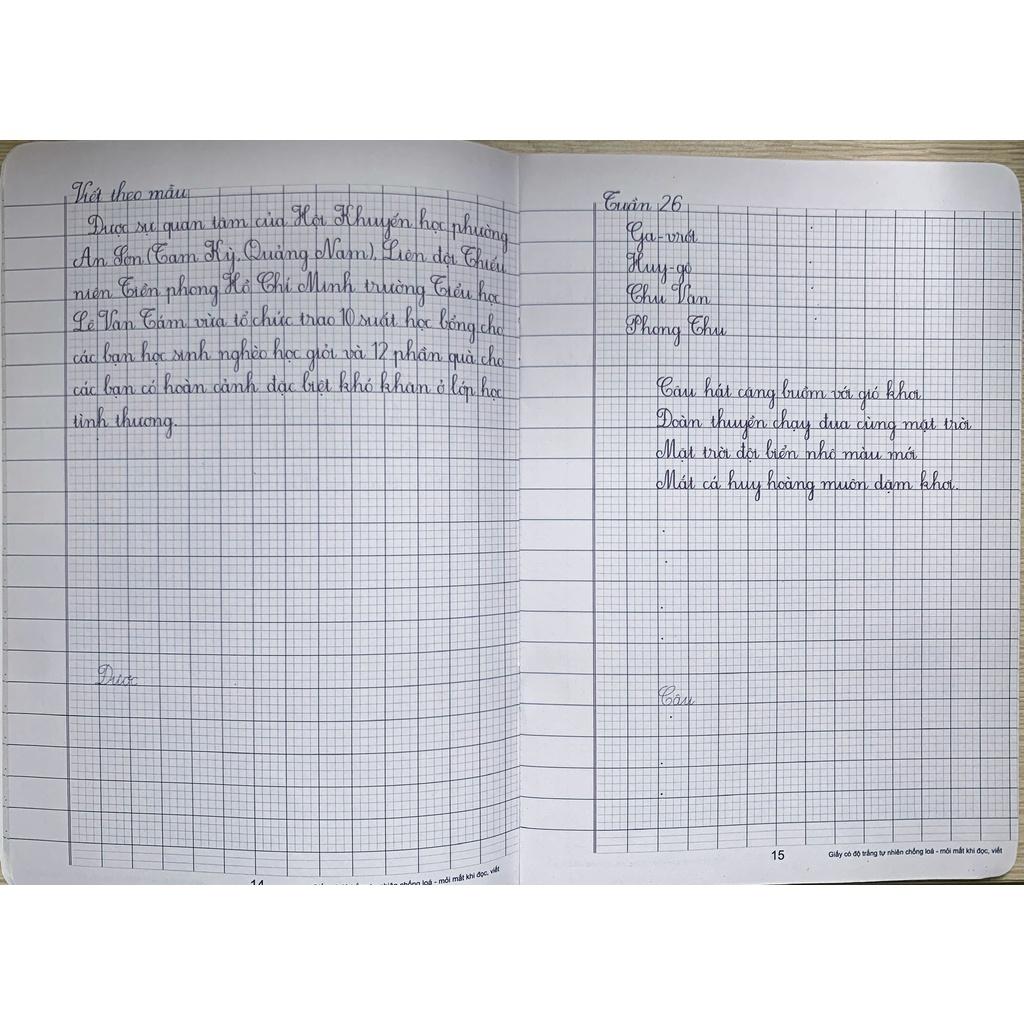 Viết theo mẫu
Được sự quan tâm của Hội Khuyến học phường
An Sơn (Tam Kỳ, Quảng Nam), Liên đội Thiếu
niên Tiền phong Hồ Chí Minh trường Tiểu học
Lê Văn Tám vừa tổ chức trao 10 suất học bổng cho
các bạn học sinh nghèo học giỏi và 12 phần quà cho
các bạn có hoàn cảnh đặc biệt khó khăn ở lớp học
tình thương.
Được
14
Tuần 26
Ga-vrốt
Huy-gô
Chu Văn
Phong Thu
Câu hát căng buồm với gió khơi
Đoàn thuyền chạy đua cùng mặt trời
Mặt trời đội biển nhô màu mới
Mắt cá huy hoàng muôn dặm khơi.
Câu
15
Giấy có độ trắng tự nhiên chống loá - mỏi mắt khi đọc, viết